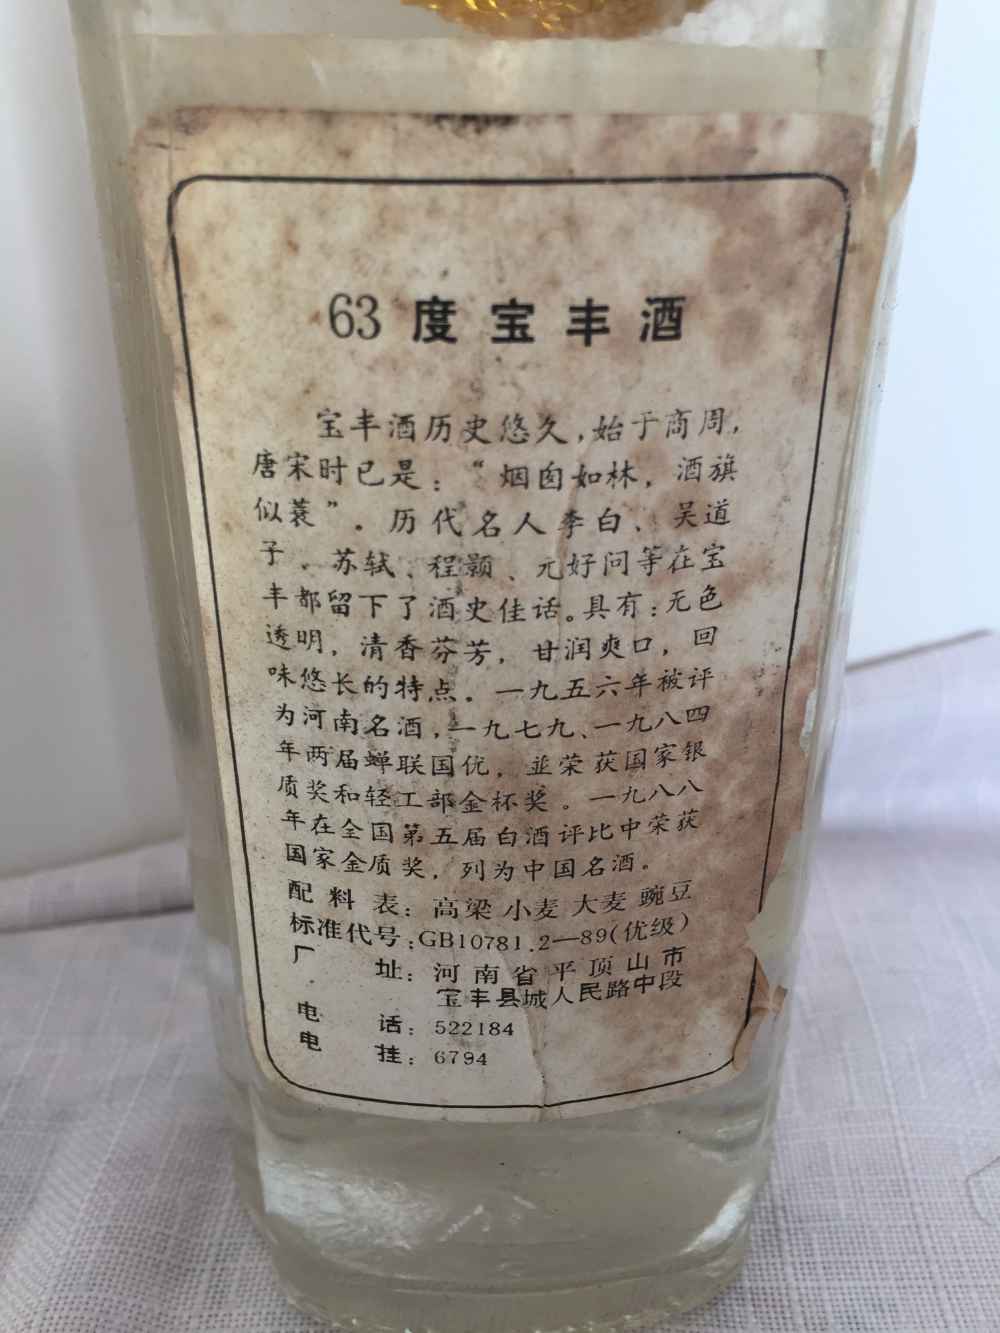 63 度宝丰酒
宝丰酒历史悠久,始于商周,
唐宋时已是:“烟囱如林,酒旗
似蓑”。历代名人李白、吴道
子、苏轼、程颢、元好问等在宝
丰都留下了酒史佳话。具有:无色
透明,清香芬芳,甘润爽口,回
味悠长的特点。一九五六年被评
为河南名酒,一九七九、一九八四
年两届蝉联国优,並荣获国家银
质奖和轻工部金杯奖。一九八八
年在全国第五届白酒评比中荣获
国家金质奖,列为中国名酒。
配料表:高梁 小麦 大麦 豌豆
标准代号:GB10781.2—89(优级)
厂址:河南省平顶山市
宝丰县城人民路中段
电话:522184
电挂:6794